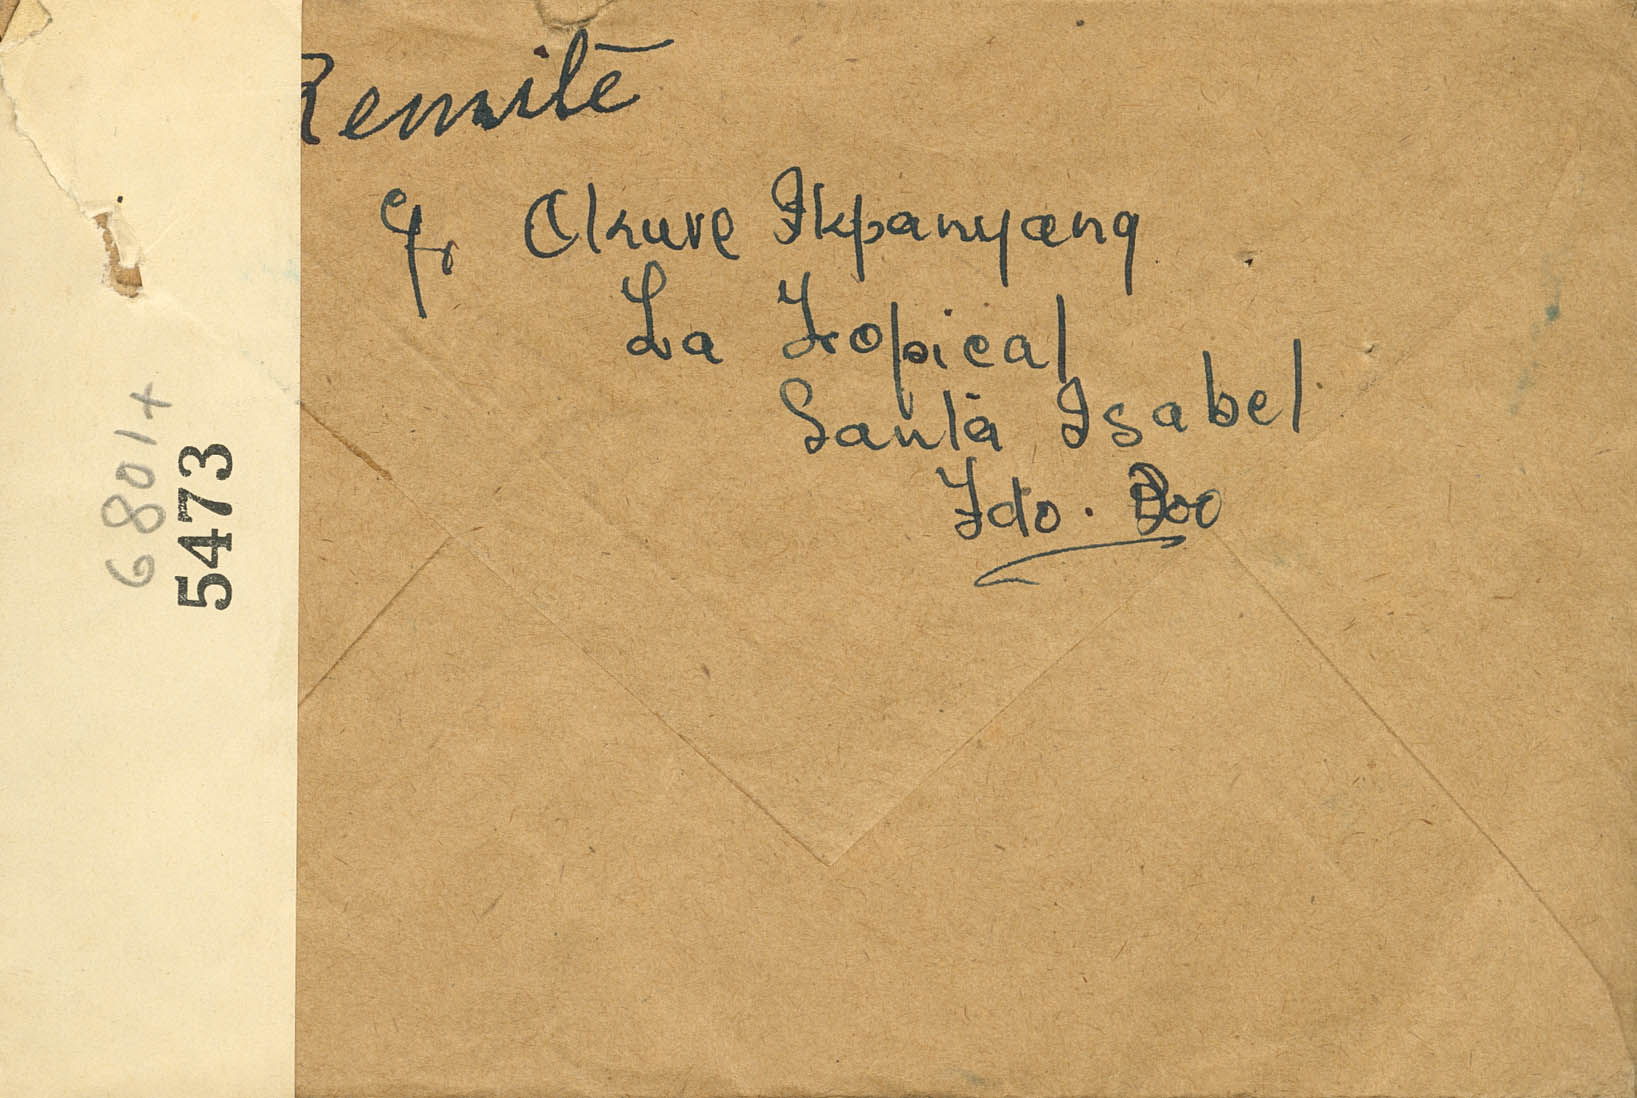 Remite
c/o Okure Ikpanyang
La Tropical
Santa Isabel
Fdo. Poo
6801+
5473